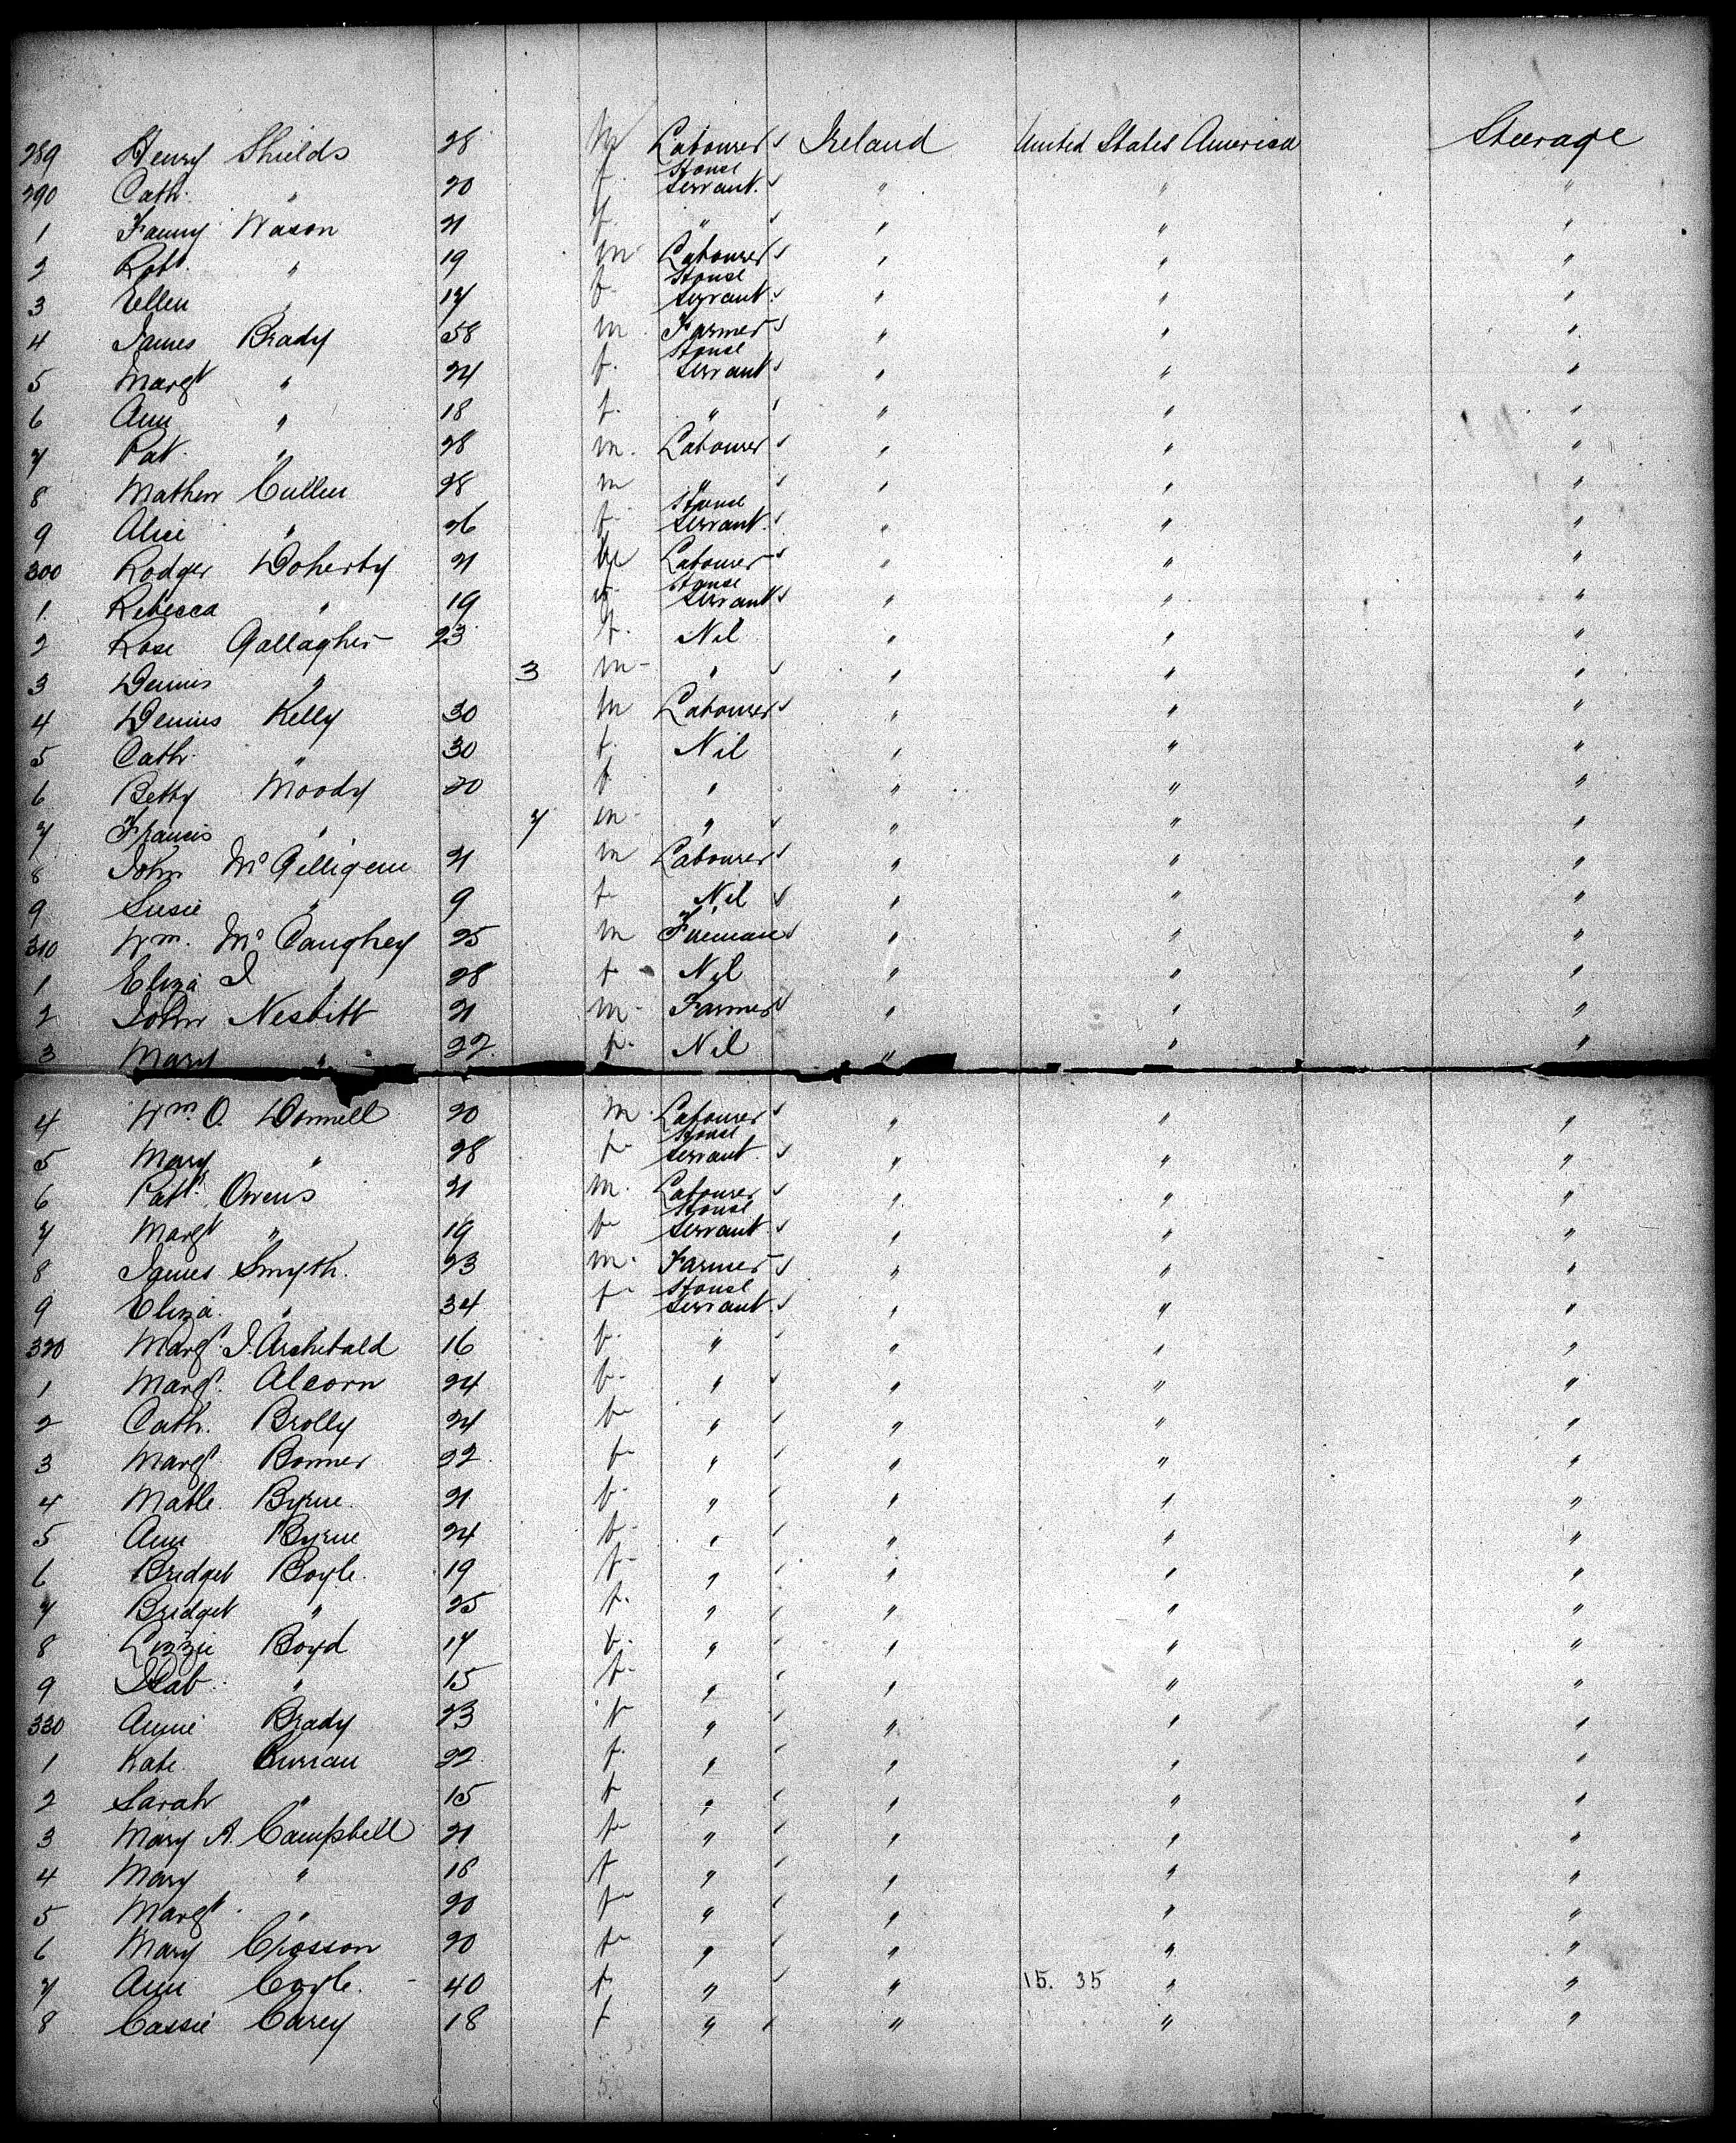 289 Henry Shields 28 m Labourer Ireland United States America Steerage
290 Cath. " 20 f. House Servant. " " "
1 Fanny Wason 21 f " " " "
2 Robt. " 19 m Labourer " " "
3 Ellen " 17 f House Servant. " " "
4 James Brady 58 m Farmer " " "
5 Margt " 24 f. House Servant " " "
6 Ann " 18 f. " " " "
7 Pat. " 28 m. Labourer " " "
8 Mathew Cullen 28 m " " " "
9 Alice " 26 f House Servant. " " "
300 Rodger Doherty 21 m Labourer " " "
1. Rebecca " 19 f House Servant " " "
2 Rose Gallagher 23 f. Nil " " "
3 Dennis " 3 m " " " "
4 Dennis Kelly 30 m Labourer " " "
5 Cath. " 30 f. Nil " " "
6 Betty Moody 20 f. " " " "
7 Francis " 7 m " " " "
8 John McGilligene 21 m Labourer " " "
9 Susie " 9 f Nil " " "
310 Wm. McCaughey 25 m Fireman " " "
1 Eliza J " 28 f Nil " " "
2 John Nesbitt 21 m Farmer " " "
3 Mary " 22. f. Nil " " "
4 Wm. O. Donnell 20 m. Labourer " " "
5 Mary " 28 f House Servant. " " "
6 Patk. Owens 21 m. Labourer " " "
7 Margt " 19 f House Servant. " " "
8 James Smyth. 23 m. Farmer " " "
9 Eliza. " 34 f House Servant. " " "
320 Margt. J. Archibald 16 f. " " " "
1 Margt. Alcorn 24 f. " " " "
2 Cath. Brolly 24 f " " " "
3 Margt Bonner 22. f " " " "
4 Matle. Byrne. 21 f. " " " "
5 Ann Byrne 24 f " " " "
6 Bridget Boyle. 19 f " " " "
7 Bridget " 25 f. " " " "
8 Lizzie Boyd 17 f. " " " "
9 " 15 f " " " "
330 Annie Brady 23 f " " " "
1 Kate. Curran 22. f. " " " "
2 Sarah " 15 f " " " "
3 Mary A. Campbell 21 f " " " "
4 Mary " 18 f " " " "
5 Margt. " 20 f " " " "
6 Mary Crosson 20 f " " " "
7 Ann Coyle. 40 f. " " 15. 35 " "
8 Cassie Carey 18 f " " " "